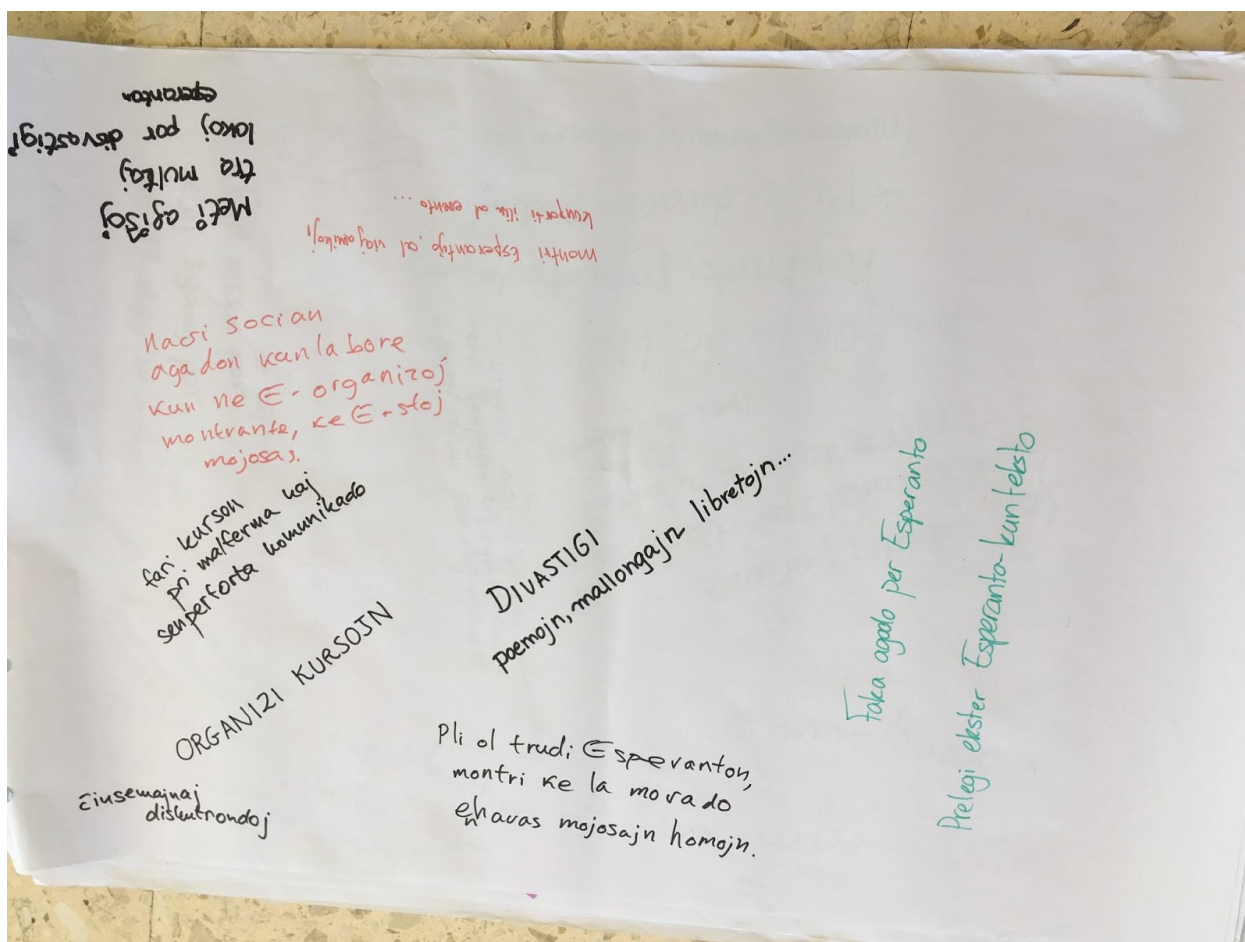 Meti afiŝojn
tra multaj
lokoj por disvastigi
eperanton
montri Esperantujo al viaj amikoj,
kunporti ilin al evento ...
socian
agadon kunlabore
kun ne E-organizoj
montrante, ke E-stoj
mojosas.
fari kurson
pri malferma kaj
senperforta komunikado
ORGANIZI KURSOJN
ĉiusemajnaj
diskutrondoj
DIVASTIGI
poemojn, mallongajn libretojn...
Pli ol trudi Esperanton,
montri ke la movado
enhavas mojosajn homojn.
Faka agado per Esperanto
Prelegi ekster Esperanta-kunteksto